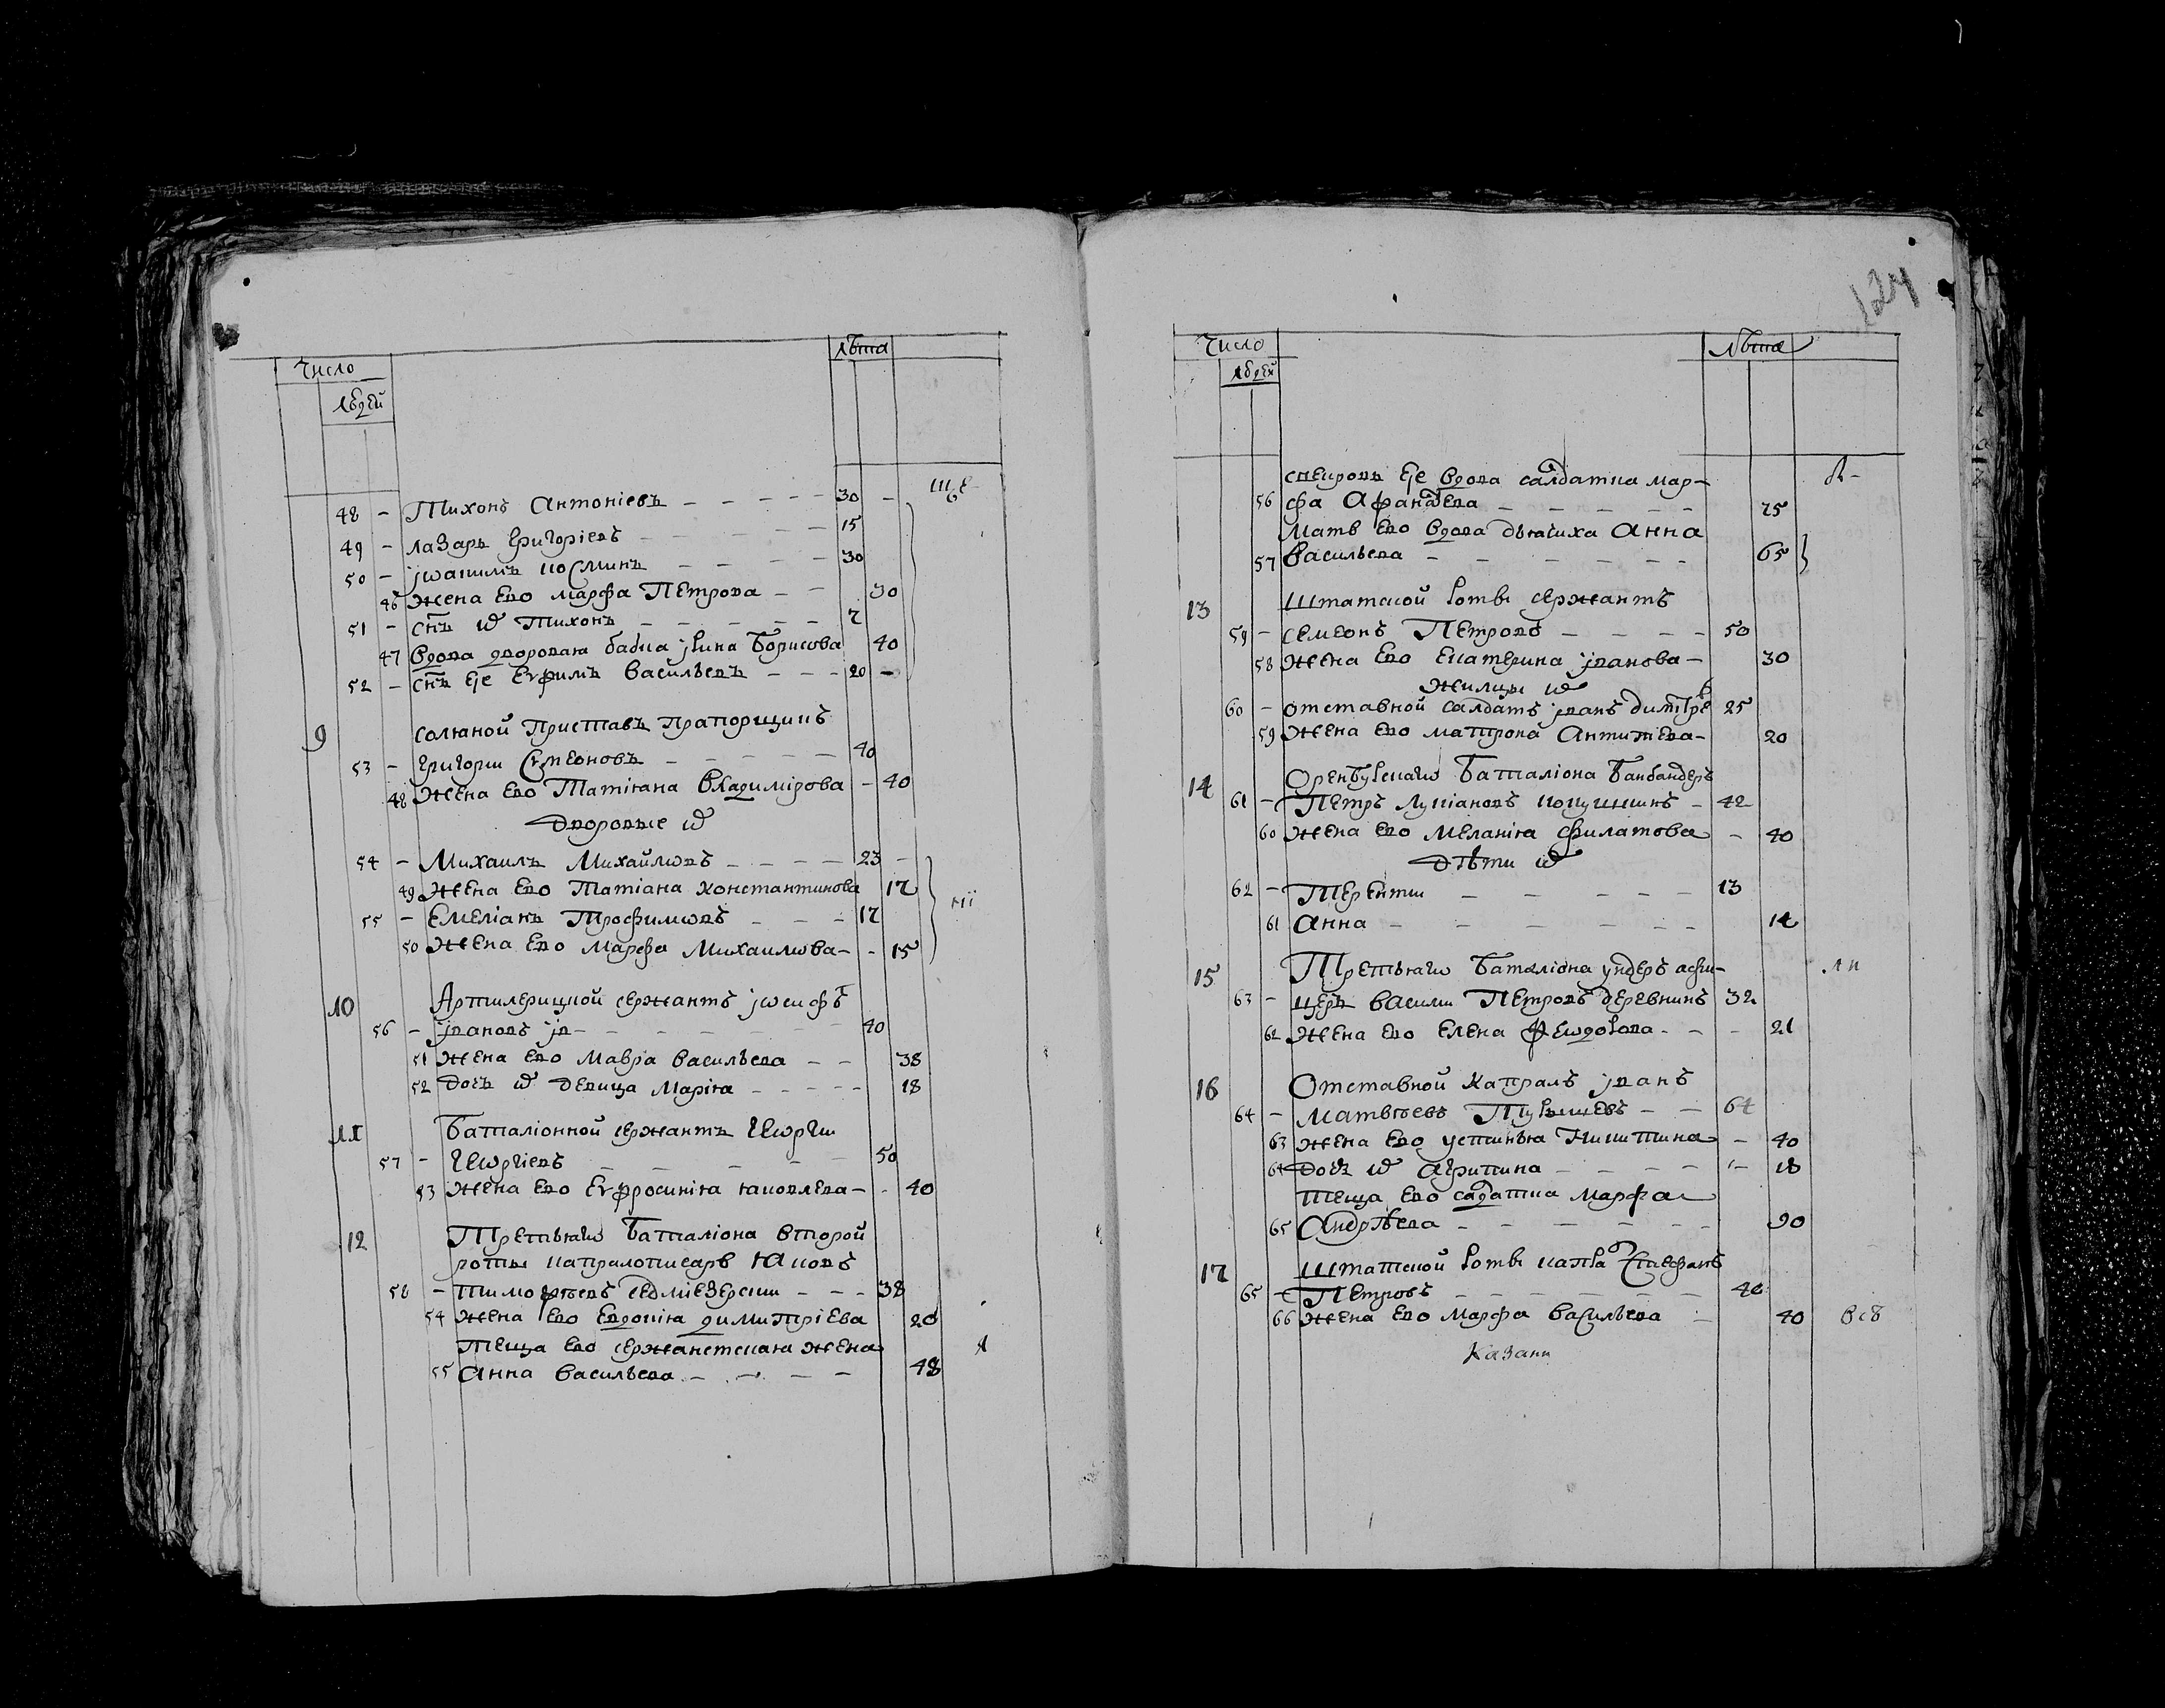 Число
людей
лѣта
48 - Тихонъ Антоніевъ - - - - - 30 -
49 - лазарь Григоріевъ - - - - - 15
50 - јѡакимъ косминъ - - - - 30
46 жена ево марфа Петрова - - 30
51 - снъ иѵ Тихонъ - - - - - 2
47 вдова дворовая бабка јрина Борисова 40
52 - снъ ее Еѵфимъ васильевъ - - - 20 -
9 солюной Приставъ прапорщикъ
53 - григори Сѵмеоновъ - - - - - 40
48 жена ево Татіяна владимірова - 40
дворовые иѵ
54 - Михаилъ Михайлѡвъ - - - - 23 -
49 жена ево Татіана константинова 17
55 - Емеліянъ Трофимѡвъ - - - 17
50 жена ево марфа Михаилѡва - - 15
10 Артилерицкой сержантъ јѡсифъ
56 - јвановъ - - - - - - - 40
51 жена ево Мавра васильева - - 38
52 дочь иѵ девица Марія - - - - - 18
11 Баталіонной сержантъ геѡрги
57 - геѡргіевъ - - - - - 50
53 жена ево Еѵфросинія яковлева - - 40
12 Третьягѡ Баталіона второй
роты капралописарь Яковъ
58 - тимоѳѣевъ - - - 38
54 жена ево Евдокія димитріева 20
Теща ево сержанетская жена
55 Анна васильева - - - - 48
124
Число
людей
лѣта
ее вдова салдатка мар-
56 фа Афанасева - - - - - 75
мать ево вдова дьячиха Анна
57 васильева - - - - - - - 65
13 Штатской роты сержантъ
59 - семеонъ Петровъ - - - - 50
58 жена ево Екатерина јванова - 30
жилцы иѵ
60 - отставной салдатъ јванъ димитре 25
59 жена ево матрона 20
14 Оренбурскагѡ Баталіона Банбандеръ
61 - Петръ Лукіановъ - 42
60 жена ево меланія филатова - 40
дѣти иѵ
62 - Теренти - - - - - - 13
61 Анна - - - - - - - 14
15 Третьягѡ Баталіона ундеръ афи-
63 - церъ васили Петровъ деревнинъ 32
62 жена ево Елена ѳеѡдорова - - - 21
16 Отставной капралъ јванъ
64 - матвѣевъ - - 64
63 жена ево устинья Никитина - 40
64 дочь иѵ агрипина - - - - - 18
теща ево садатка марфа
65 Андрѣева - - - - - - - 90
17 Штатской роты капра Стаефанъ
65 - Петровъ - - - - - - - 40
66 жена ево марфа васильева - 40
казани